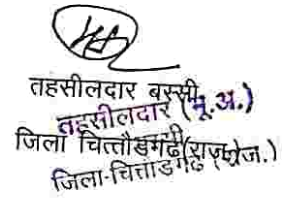 तहसीलदार बस्सी
तहसीलदार (भू.अ.)
जिला चित्तौड़गढ़ (राज.)
जिला-चित्तौड़गढ़ (राज.)